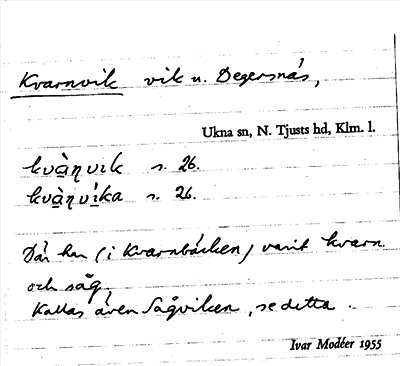 Kvarnvik vik u. Degersnäs,
Ukna sn, N. Tjusts hd, Klm. l.
kvànvik s. 26.
kvànvika s. 26.
Där har (i Kvarnbäcken) varit kvarn
och såg.
Kallas även Sågviken, se detta.
Ivar Modéer 1955